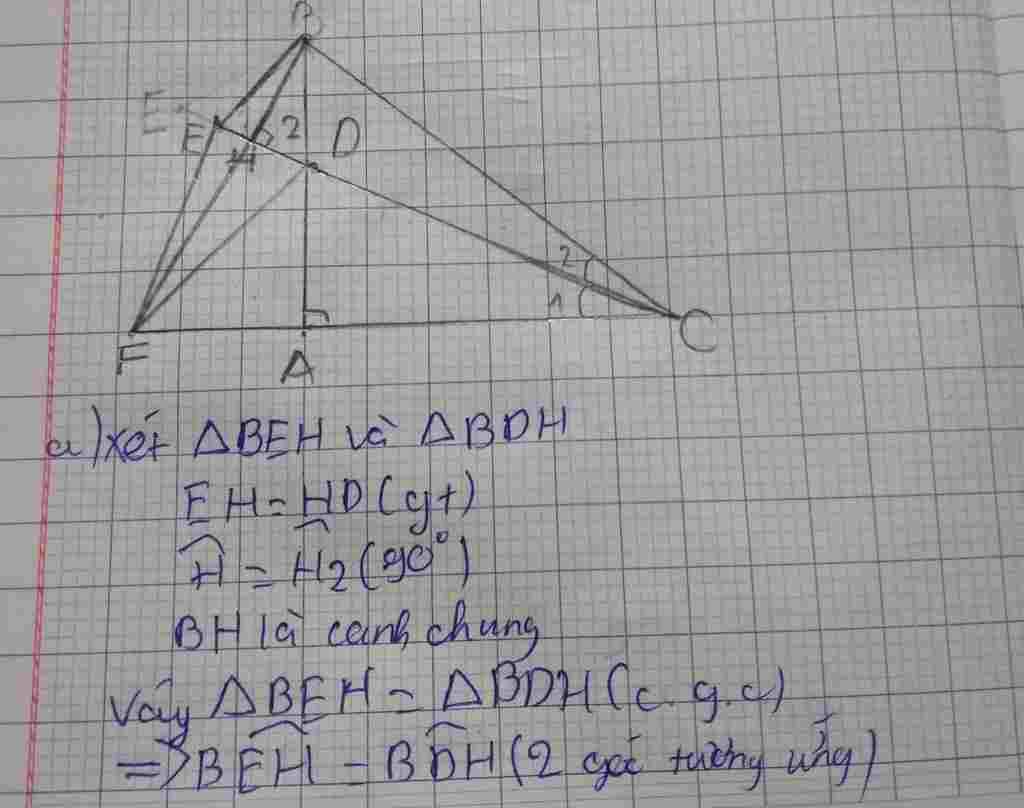 B
E
E 2 D
H
2
1
F A C
a) xét ΔBEH và ΔBDH
EH = HD (gt)
Ĥ = Ĥ2 (90°)
BH là cạnh chung
Vậy ΔBEH = ΔBDH (c.g.c)
=> BÊH = BD̂H (2 góc tương ứng)